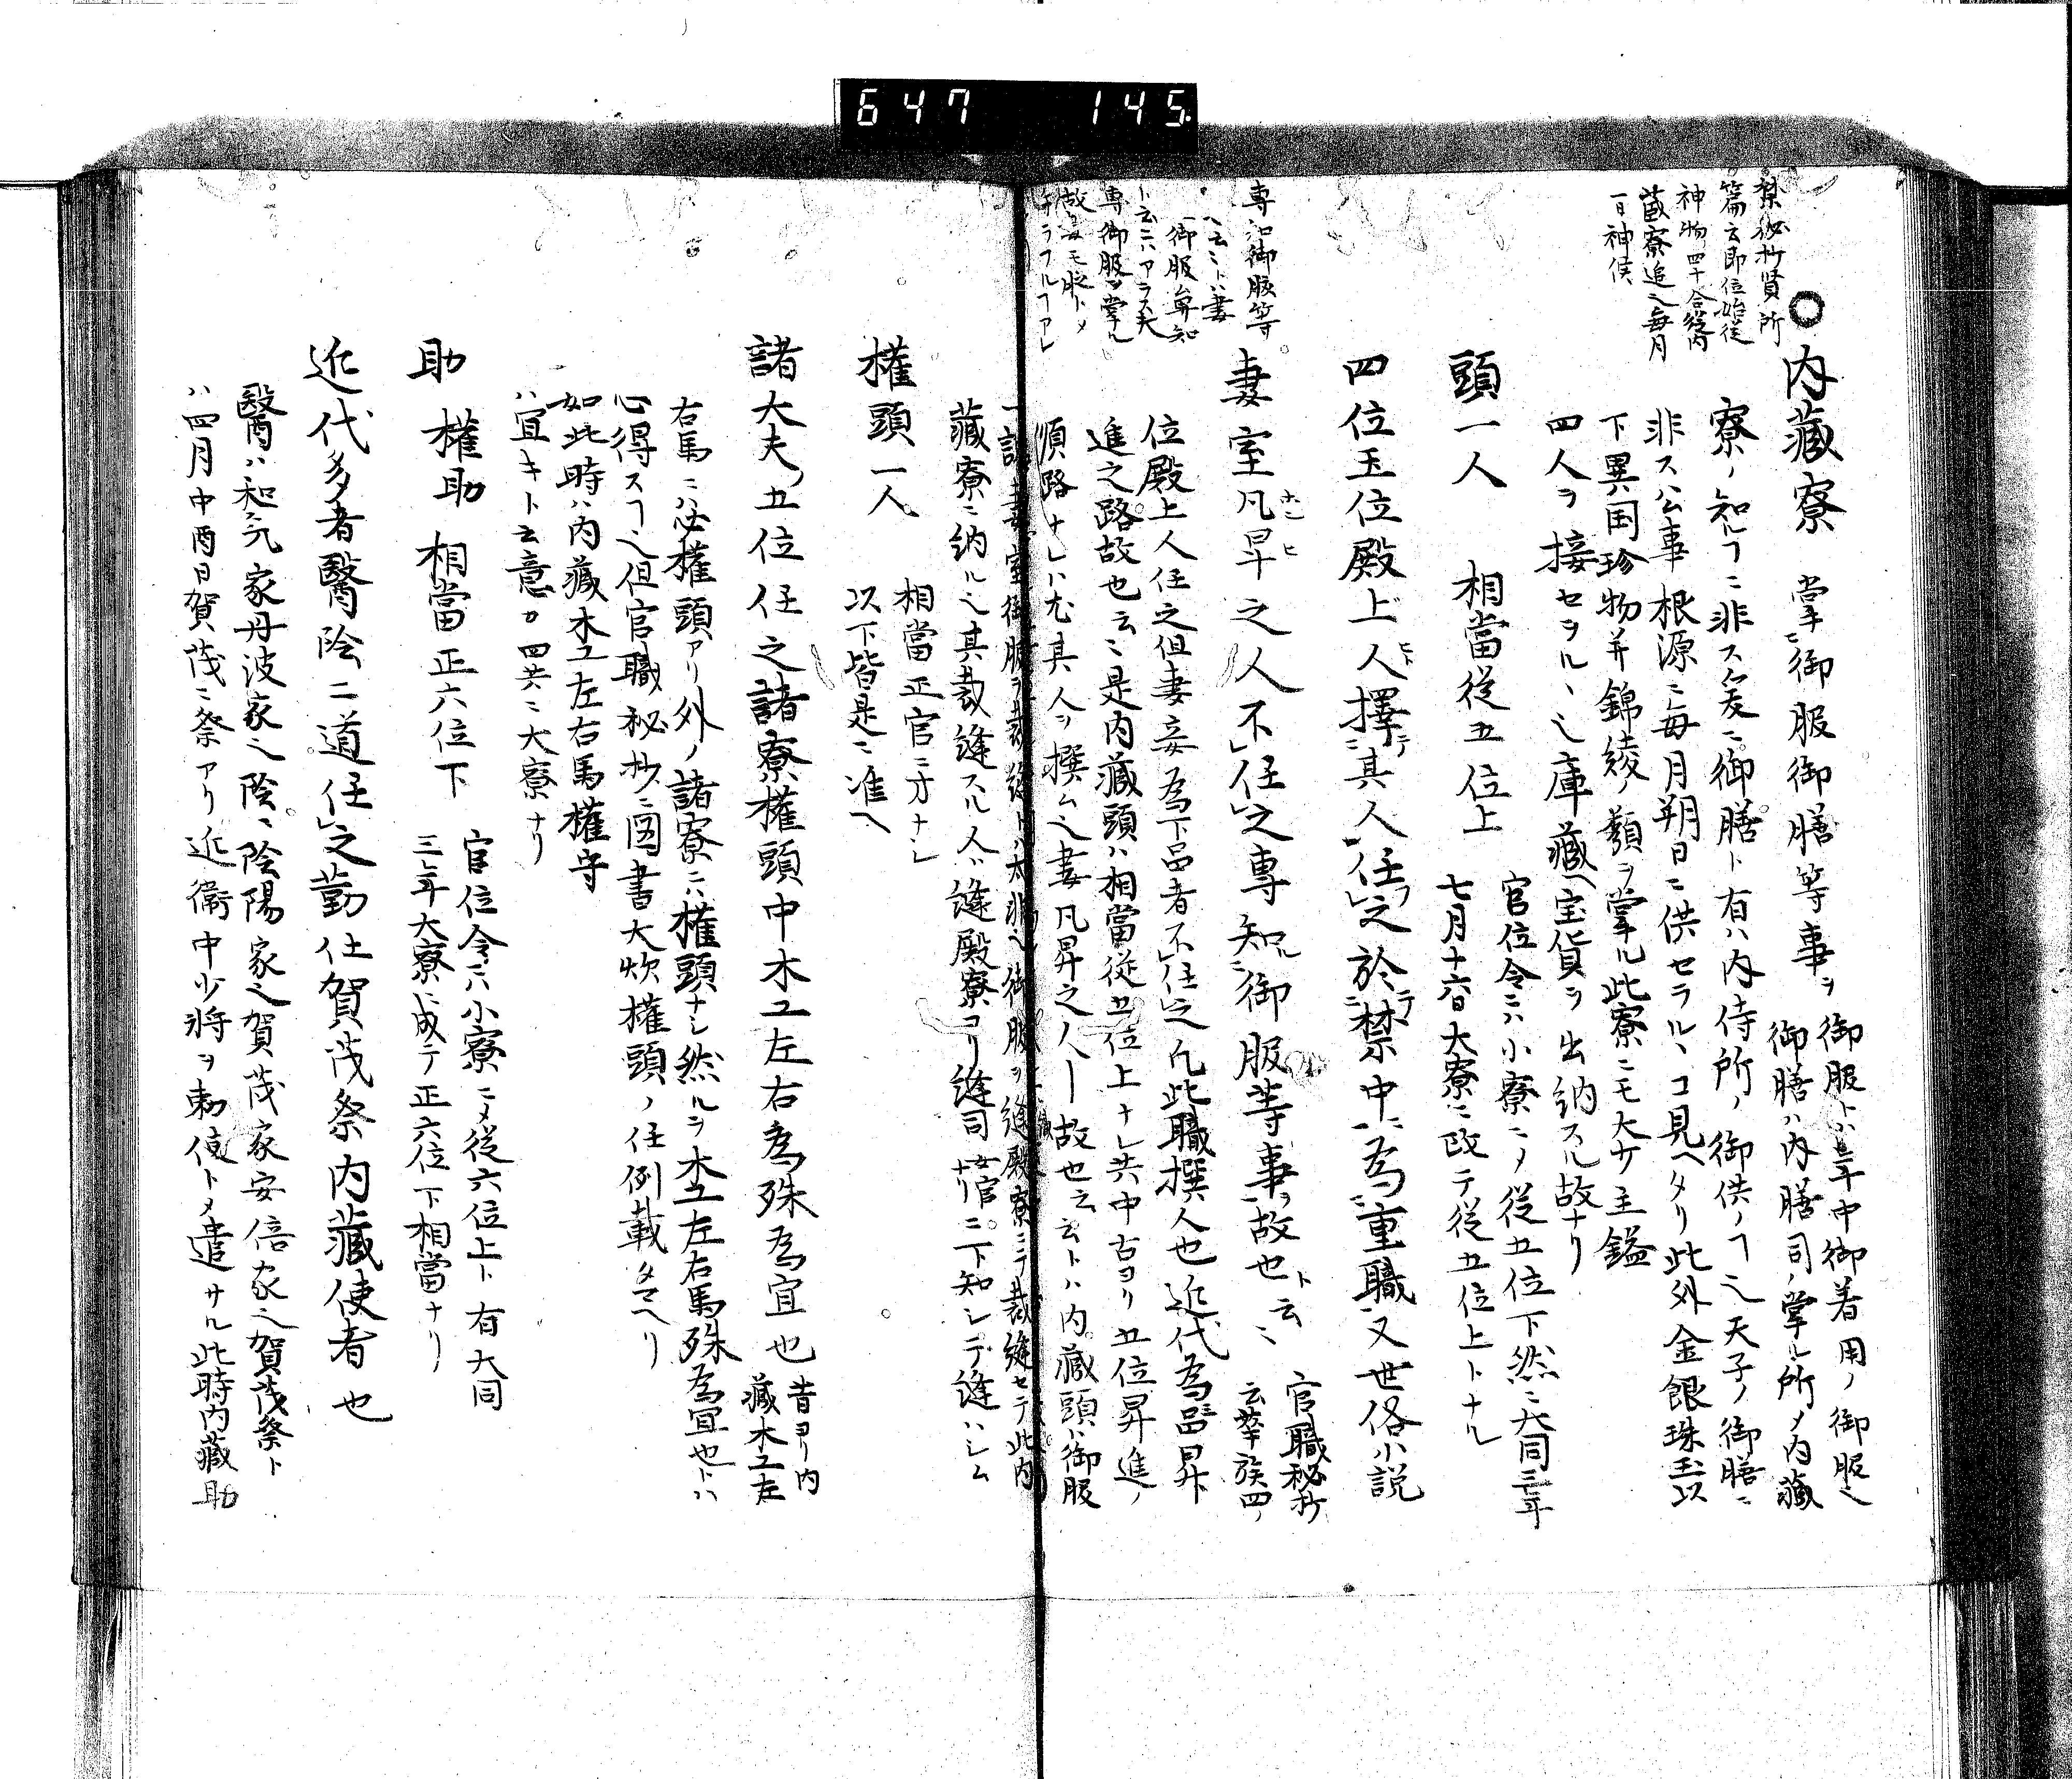 647 145
禁秘抄賢所
篇云即位始従
神物四十合従内
蔵寮進之毎月
一日神供
○内藏寮 掌御服御膳等事ヲ
御服トハ年中御着用ノ御服也
御膳ハ内膳司ノ掌ル所ノ内藏
寮ノ知ルフニ非ス爰ニ御膳ト有ハ内侍所ノ御供ノフ也天子ノ御膳ニ
非ス公事根源ニ毎月朔日ニ供セラルヽコ見ヘタリ此外金銀珠玉以
下異国珍物并錦綾ノ類ヲ掌ル此寮ニモ大少主鎰
四人ヲ接セラルヽ也庫藏ヘ宝貨ヲ出納スル故ナリ
頭一人 相當従五位上
官位令ニハ小寮ニメ従五位下然ニ大同三年
七月十六日大寮ニ改テ従五位上トナル
四位五位殿上人擇其人任之於禁中為重職又世俗小説
専知御服等
ヘ云ミトハ妻
御服専知
ト云ニハアラス夫
専御服ヲ掌ル
妻室凡卑之人不任之専知御服等事故也ト云ミ
官職秘抄
云華族四
位殿上人任之但妻妾為下品者不任之凡此職撰人也近代為四品昇
進之路故也云ミ是内藏頭ハ相當従五位上ナレ共中古ヨリ五位昇進ノ
順路ナレハ尤其人ヲ撰ム也妻凡卑之人ー故也云云トハ内藏頭ハ御服
藏寮ニ納ル也其裁縫スル人ハ縫殿寮ヨリ縫司女官ナリニ下知シテ縫ハシム
權頭一人
相當正官ニ才ナシ
以下皆是ニ准ヘ
諸大夫五位任之諸寮權頭中木工左右為殊為宜也
昔ヨリ内
藏木工左
右馬ニハ必權頭アリ外ノ諸寮ニハ權頭ナシ然ルヲ木工左右馬殊為宜也トハ
心得スフ也但官職秘抄ニ図書大炊權頭ノ任例載タマヘリ
如此時ハ内藏木工左右馬權守
ハ宜キト云意カ四共ニ大寮ナリ
助 權助 相當正六位下
官位令ニハ小寮ニメ従六位上ト有大同
三年大寮ニ成テ正六位下相當ナリ
近代多者醫陰二道任之勤仕賀茂祭内藏使者也
醫ハ和元家丹波家也陰ハ陰陽家也賀茂家安倍家也賀茂祭ト
ハ四月中酉日賀茂ニ祭アリ近衞中少将ヲ勅使トメ遣サル此時内藏助